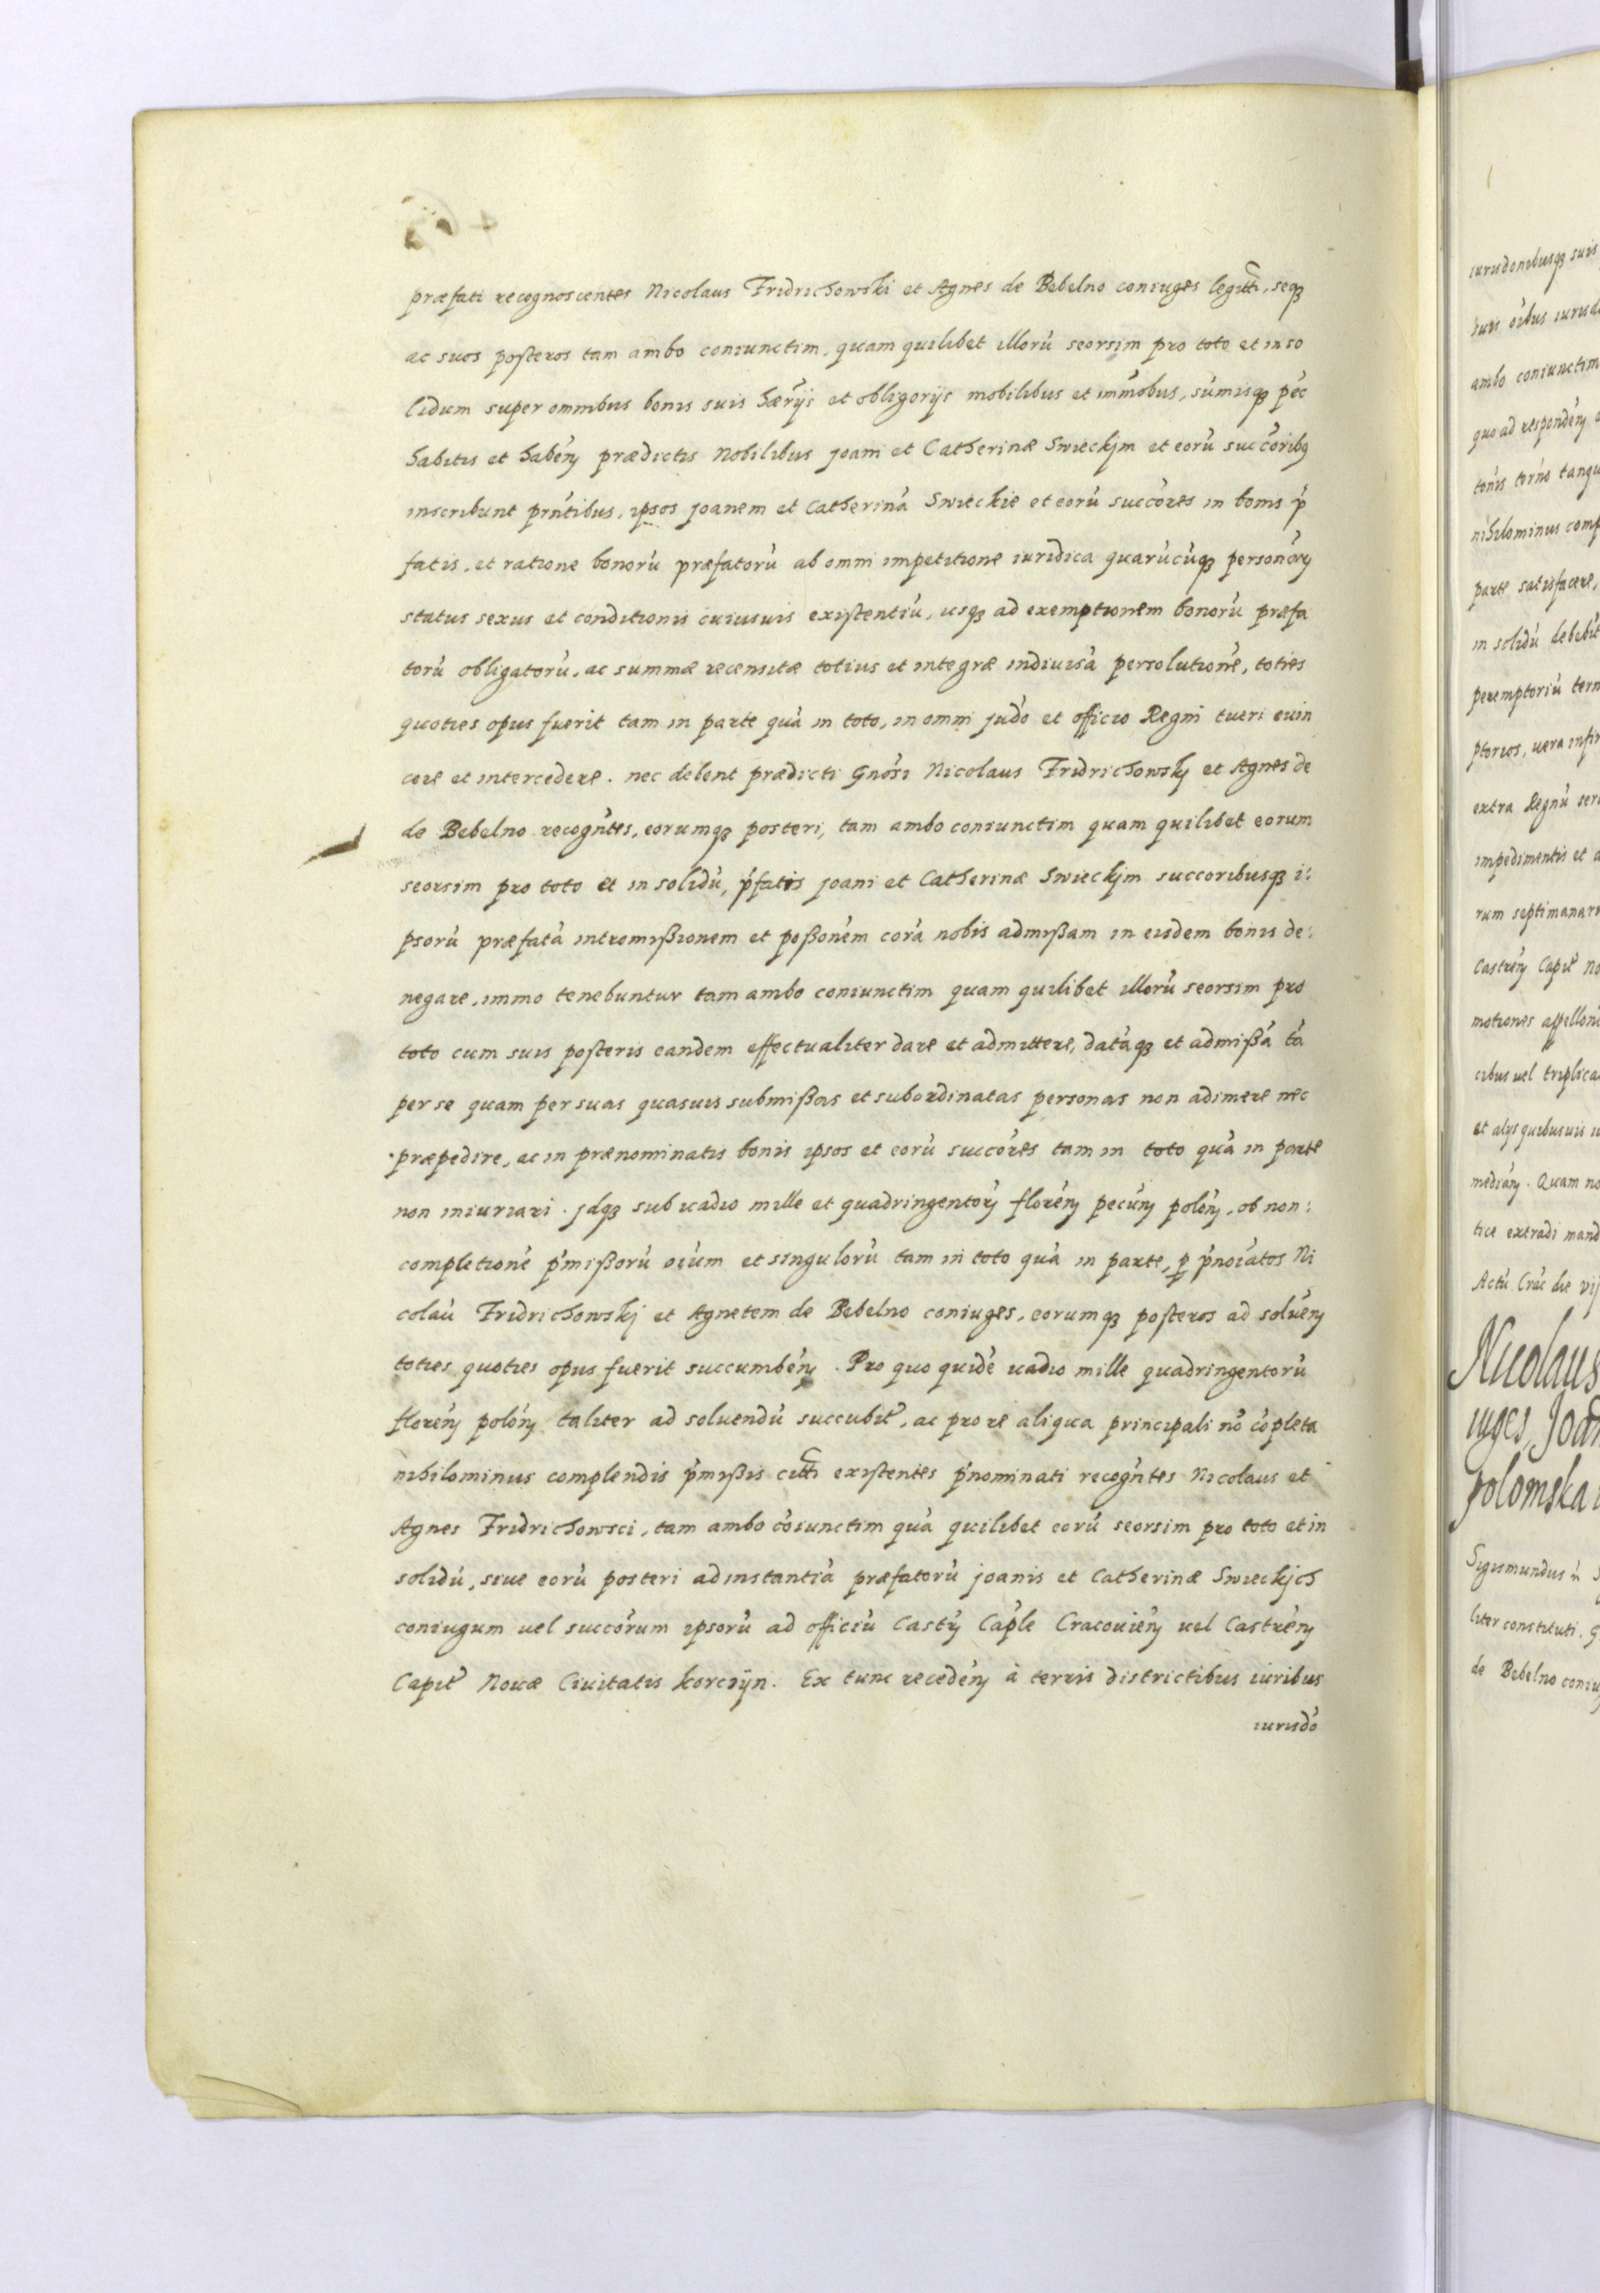 præfati recognoscentes Nicolaus Fridrichowski et Agnes de Bebelno coniuges legitti, seq3
ac suos posteros tam ambo coniunctim, quam quilibet illorú seorsim pro toto et in so
lidum super omnibus bonis suis hærijs et obligorijs mobilibus et immobus, súmisq3 péc
habitis et habén prædictis Nobilibus joani et Catherinæ Swieckjm et eorú succóribq
inscribunt prńtibus, ipsos joanem et Catheriná Swieckie et eorú succóres in bonis ṕ
fatis, et ratione bonorú præfatorú ab omni impetitione iuridica quarúcúq3 personóry
status sexus et conditionis cuiusuis existentiú, usq3 ad exemptionem bonorú præfa
torú obligatorú, ac summæ recensitæ totius et integræ indiuisá persolutioné, toties
quoties opus fuerit tam in parte quá in toto, in omni judó et officio Regni tueri euin
cere et intercedere. nec debent prædicti Gnósi Nicolaus Fridrichowskj et Agnes de
de Bebelno recogńtes, eorumq3 posteri, tam ambo coniunctim quam quilibet eorum
seorsim pro toto et in solidú, ṕfatis joani et Catherinæ Swieckjm succoribusq3 i:
psorú præfatá intromißionem et poßoném corá nobis admißam in eisdem bonis de:
negare, immo tenebuntur tam ambo coniunctim quam quilibet illorú seorsim pro
toto cum suis posteris eandem effectualiter dare et admittere, datáq3 et admißá tá
per se quam per suas quasuis submißas et subordinatas personas non adimere nec
præpedire, ac in prænominatis bonis ipsos et eorú succóres tam in toto quá in parte
non iniuriari. jdq3 sub vadio mille et quadringentorý florén pecún polón, ob non:
completioné ṕmißorú oíum et singulorú tam in toto quá in parte, p ṕnoíatos Ni
colaú Fridrichowskj et Agnetem de Bebelno coniuges, eorumq3 posteros ad soluén
toties quoties opus fuerit succumbén. Pro quo quidé vadio mille quadringentorú
florén polón taliter ad soluendú succubit́, ac pro re aliqua principali nó cópleta
nihilominus complendis ṕmißis citti existentes ṕnominati recogńtes Nicolaus et
Agnes Fridrichowsci, tam ambo cóiunctim quá quilibet eorú seorsim pro toto et in
solidú, siue eorú posteri ad instantiá præfatorú joanis et Catherinæ Swieckjch
coniugum uel succórum ipsorú ad officiú Castŕ Cáple Cracouién uel Castrén
Capit́ Nouæ Ciuitatis korczijn. Ex tunc recedén à terris districtibus iuribus
iurisdó
iurisdonibusq3 suis
suis óibus iurisd
ambo coniunctim
quo ad respondén
nihilominus comp
parte satisfacere,
in solidú debebit́
peremptoriú term
ptorios, uera infir
extra Regnú ser
impedimentis et a
rum septimanar
Castrén Capit́ No
motiones appelloń
cibus uel triplica
et alijs quibusuis
median. Quam no
tice extradi mand
Actú Crac die vij
Nicolaus
iuges, Joan
polomska
Sigismundus
liter constituti. G
de Bebelno coniu